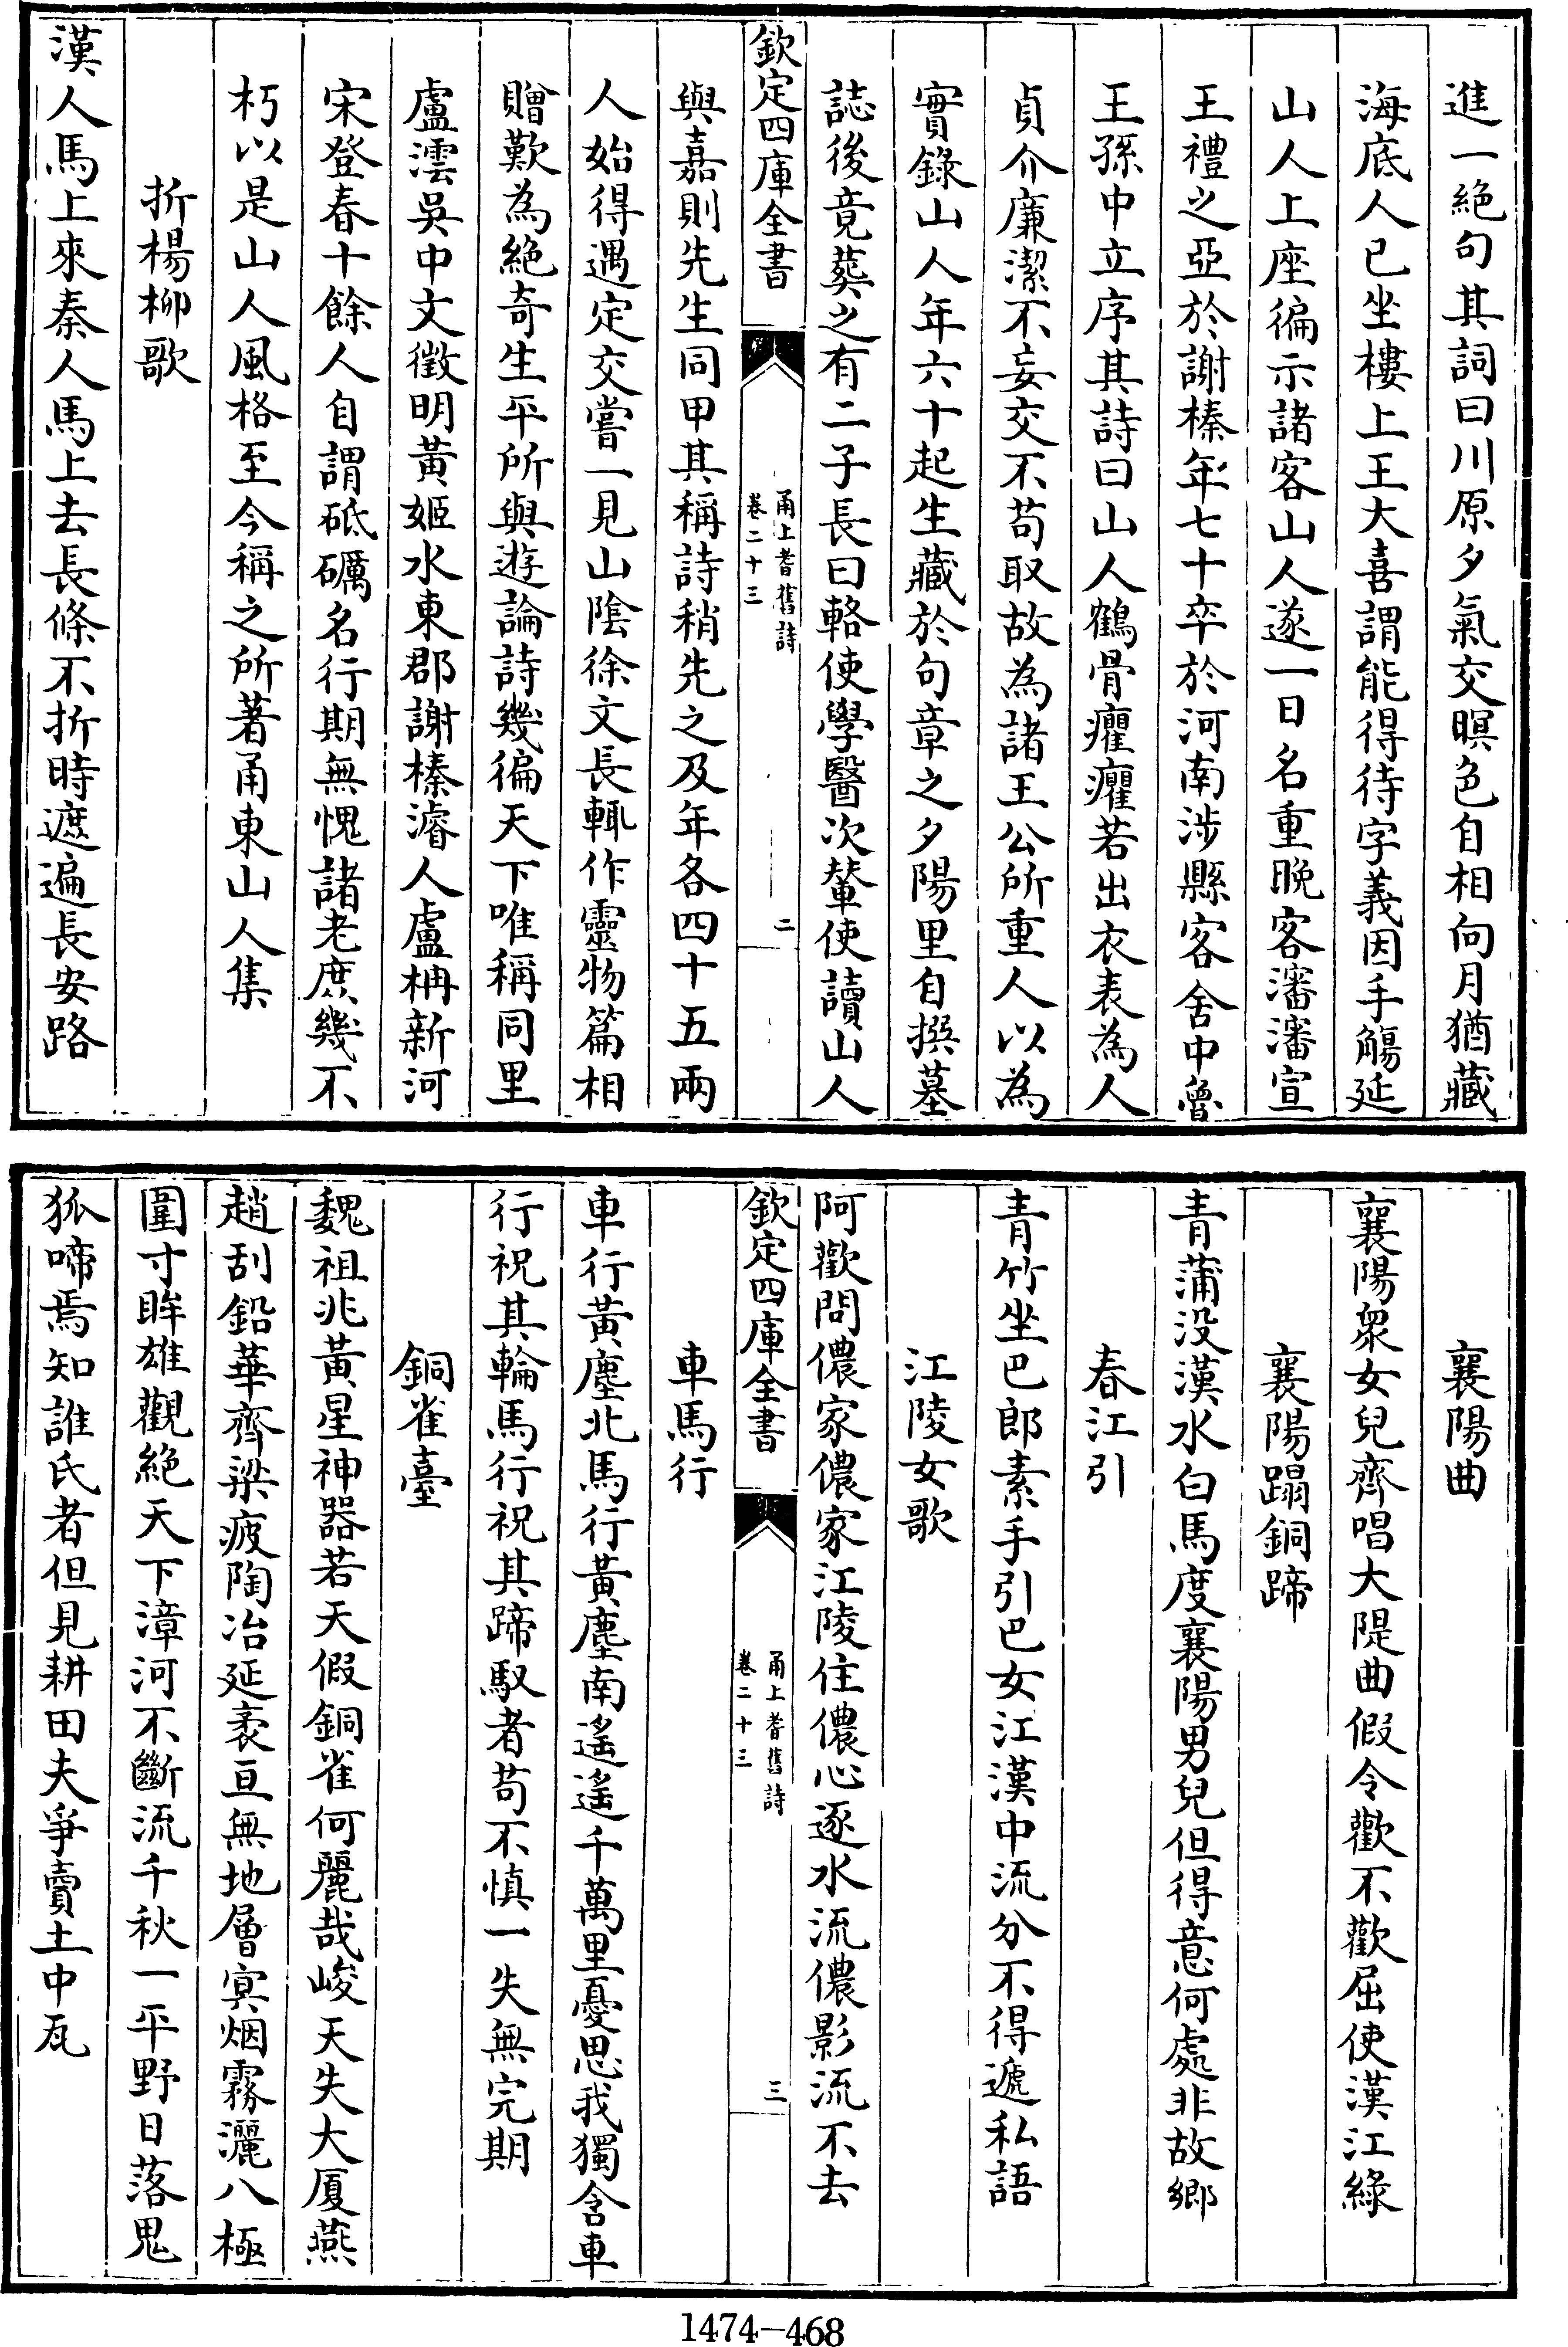 進一絶句其詞曰川原夕氣交暝色自相向月猶藏
海底人已坐樓上王大喜謂能得待字義因手觴延
山人上座徧示諸客山人遂一日名重睌客瀋瀋宣
王禮之亞於謝榛年七十卒於河南涉縣客舍中魯
王孫中立序其詩曰山人鶴骨癯癯若出衣表為人
貞介廉潔不妄交不苟取故為諸王公所重人以為
實錄山人年六十起生藏於句章之夕陽里自撰墓
誌後竟葬之有二子長曰輅使學醫次輦使讀山人
欽定四庫全書
甬上耆舊詩
卷二十三
二
與嘉則先生同甲其稱詩稍先之及年各四十五兩
人始得遇定交嘗一見山陰徐文長輒作靈物篇相
贈歎為絶奇生平所與遊論詩幾徧天下唯稱同里
盧澐吳中文徵明黃姬水東郡謝榛濬人盧柟新河
宋登春十餘人自謂砥礪名行期無愧諸老庶幾不
朽以是山人風格至今稱之所著甬東山人集
折楊柳歌
漢人馬上來秦人馬上去長條不折時遮遍長安路
襄陽曲
襄陽衆女兒齊唱大隄曲假令歡不歡屈使漢江綠
襄陽蹋銅蹄
青蒲没漢水白馬度襄陽男兒但得意何處非故鄉
春江引
青竹坐巴郎素手引巴女江漢中流分不得遞私語
江陵女歌
阿歡問儂家儂家江陵住儂心逐水流儂影流不去
欽定四庫全書
甬上耆舊詩
卷二十三
三
車馬行
車行黃塵北馬行黃塵南遙遙千萬里憂思我獨含車
行祝其輪馬行祝其蹄馭者苟不慎一失無完期
銅雀臺
魏祖兆黃星神器若天假銅雀何麗哉峻天失大厦燕
趙刮鉛華齊梁疲陶冶延袤亘無地層㝠烟霧灑八極
圍寸眸雄觀絶天下漳河不斷流千秋一平野日落鬼
狐啼焉知誰氏者但見耕田夫爭賣土中瓦
1474-468